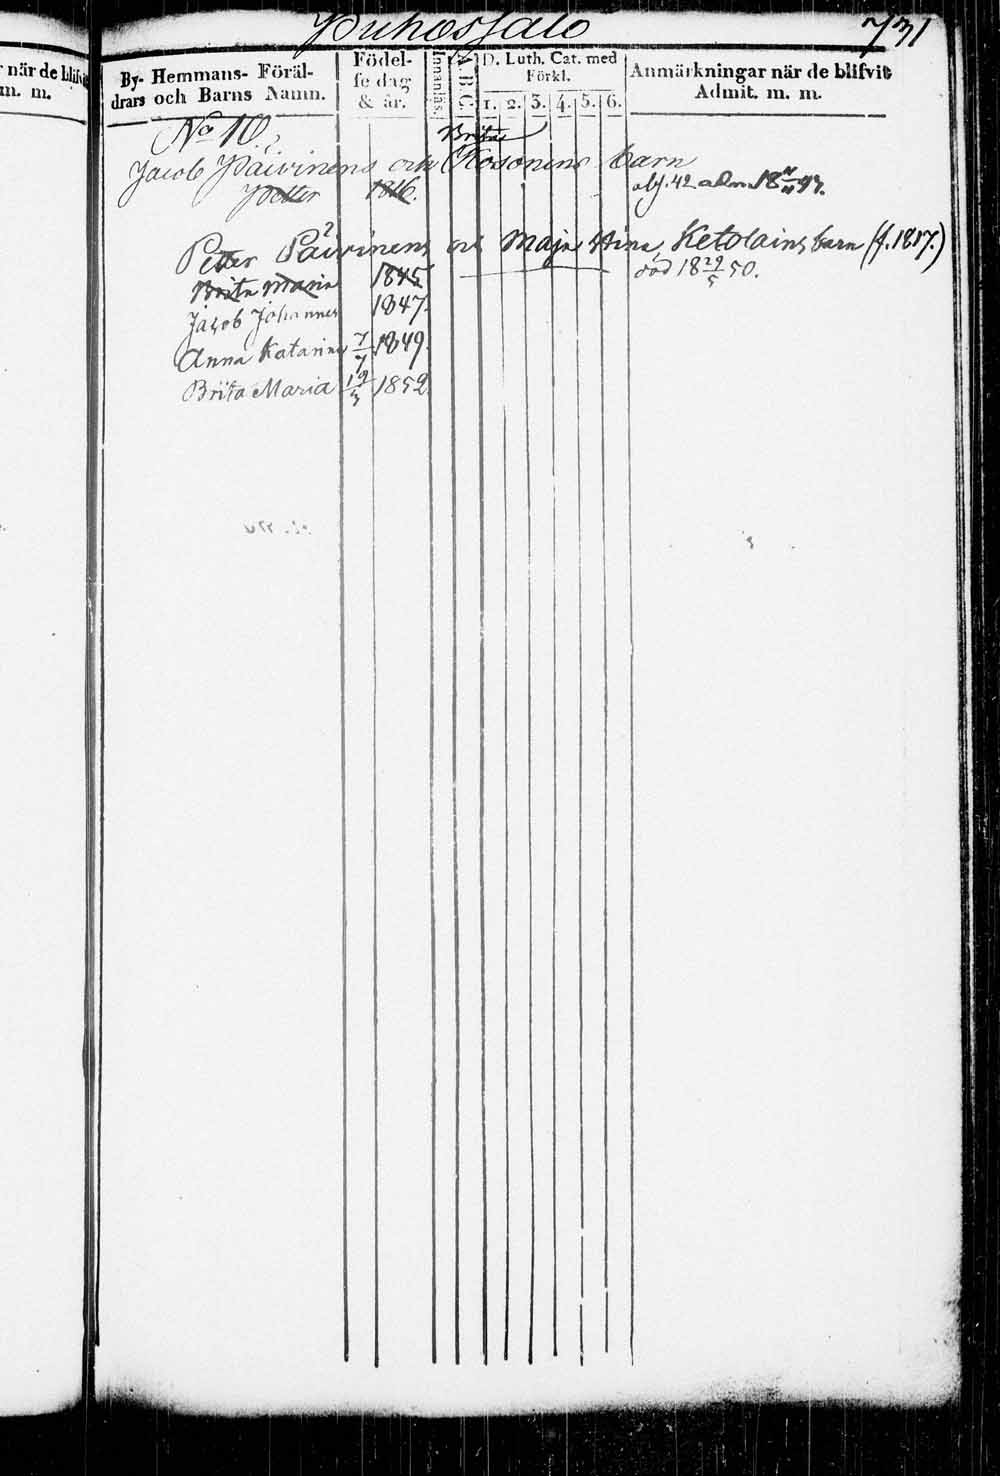 Puhossalo 731
när de blifvit
m. m.
By- Hemmans- Föräl-
drars och Barns Namn.
Födel-
se dag
& år.
Innanläs.
A. B. C.
D. Luth. Cat. med
Förkl.
1. 2. 3. 4. 5. 6.
Anmärkningar när de blifvit
Admit. m. m.
No 10.
Brita
Jacob Päivinens och Kosonens barn
Petter 1816. 42 adm.
Petter Päivinens och Maja Stina Ketolains barn (f. 1817.)
Brita Maria 1845 död 18 29/5 50.
Jacob Johannes 1847.
Anna Katarina 7/7 1849.
Brita Maria 19/3 1852.